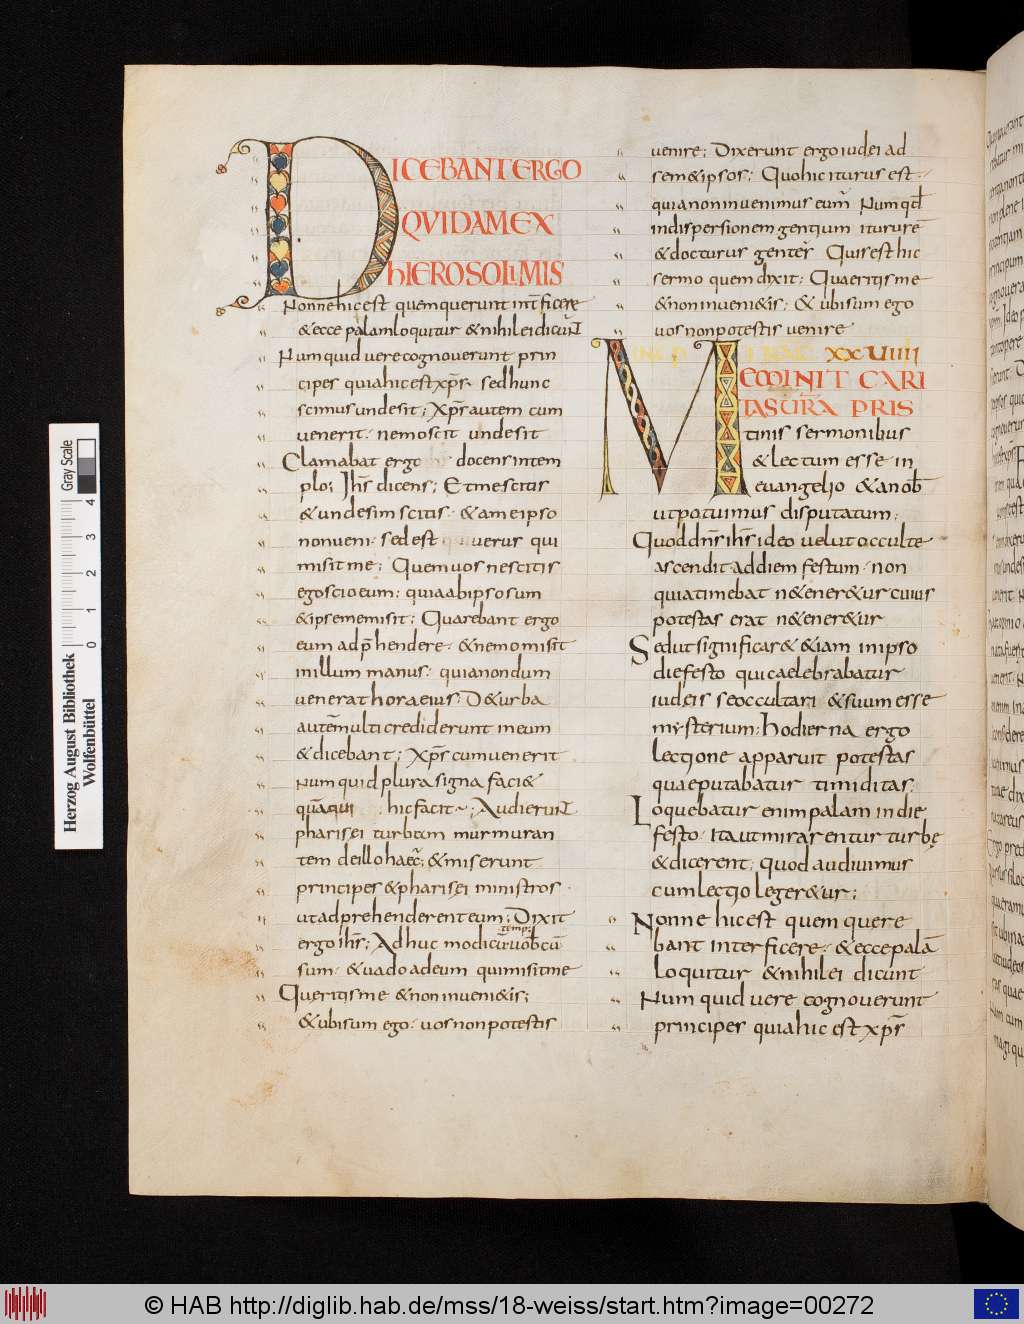 DICEBANT ERGO
QVIDAM EX
hIEROSOLIMIS
Nonne hic est quem querunt int̄ficere
& ecce palam loquitur & nihil ei dicuNT
Numquid vere cognoverunt prin
cipes quia hic est xp̄s· sed hunc
scimus unde sit; Xp̄s autem cum
venerit· nemo scit unde sit
Clamabat ergo docens in tem
plo; Ih̄s dicens; Et me scitis
& unde sim scitis· & a me ipso
non veni· sed est verus qui
misit me; Quem vos nescitis
ego scio eum; quia ab ipso sum
& ipse me misit; Quarebant ergo
eum adp̄hendere· & nemo misit
in illum manus· quia nondum
venerat hora eius; D& urba
autē multi crediderunt in eum
& dicebant; Xp̄s cum venerit
Numquid plura signa faci&
quā qui hic facit; AudieruNT
pharisei turbam murmuran
tem de illo haec; & miserunt
principes & pharisei ministros·
ut adprehenderent eum; Dixit
ergo ih̄s; Adhuc modicū temp; vob̄cū
sum· & vado ad eum qui misit me
Queritis me & non inveni&is;
& ubi sum ego· vos non potestis
venire; Dixerunt ergo iudei ad
sem&ipsos; Quo hic iturus est·
quia non invenimus eum Numqd̄
in dispersionem gentium iturur ē
& docturus gentes Quis est hic
sermo quem dixit; Quaeritis me
& non inveni&is· & ubi sum ego
vos non potestis venire
XXVIIII
MEMINIT CARI
TAS VR̄A PRIS
tinis sermonibus
& lectum esse in
evangelio & a nob̄
ut potuimus disputatum;
Quod dn̄s ih̄s ideo velut occulte
ascendit ad diem festum· non
quia timebat n& ener&ur cuius
potestas erat n& ener&ur
Sed ut significar& &iam in ipso
die festo qui caelebrabatur
iudeis se occultari & suum esse
mysterium; Hodierna ergo
lectione apparuit potestas
quae putabatur timiditas;
Loquebatur enim palam in die
festo· Ita ut mirarentur turbę
& dicerent; quod audivimus
cum lectio leger&ur;
Nonne hic est quem quere
bant interficere· & ecce palā
loquitur & nihil ei dicunt
Numquid vere cognoverunt
principes quia hic est xp̄s
Herzog August Bibliothek
Wolfenbüttel
Gray Scale
0 1 2 3 4
© HAB http://diglib.hab.de/mss/18-weiss/start.htm?image=00272